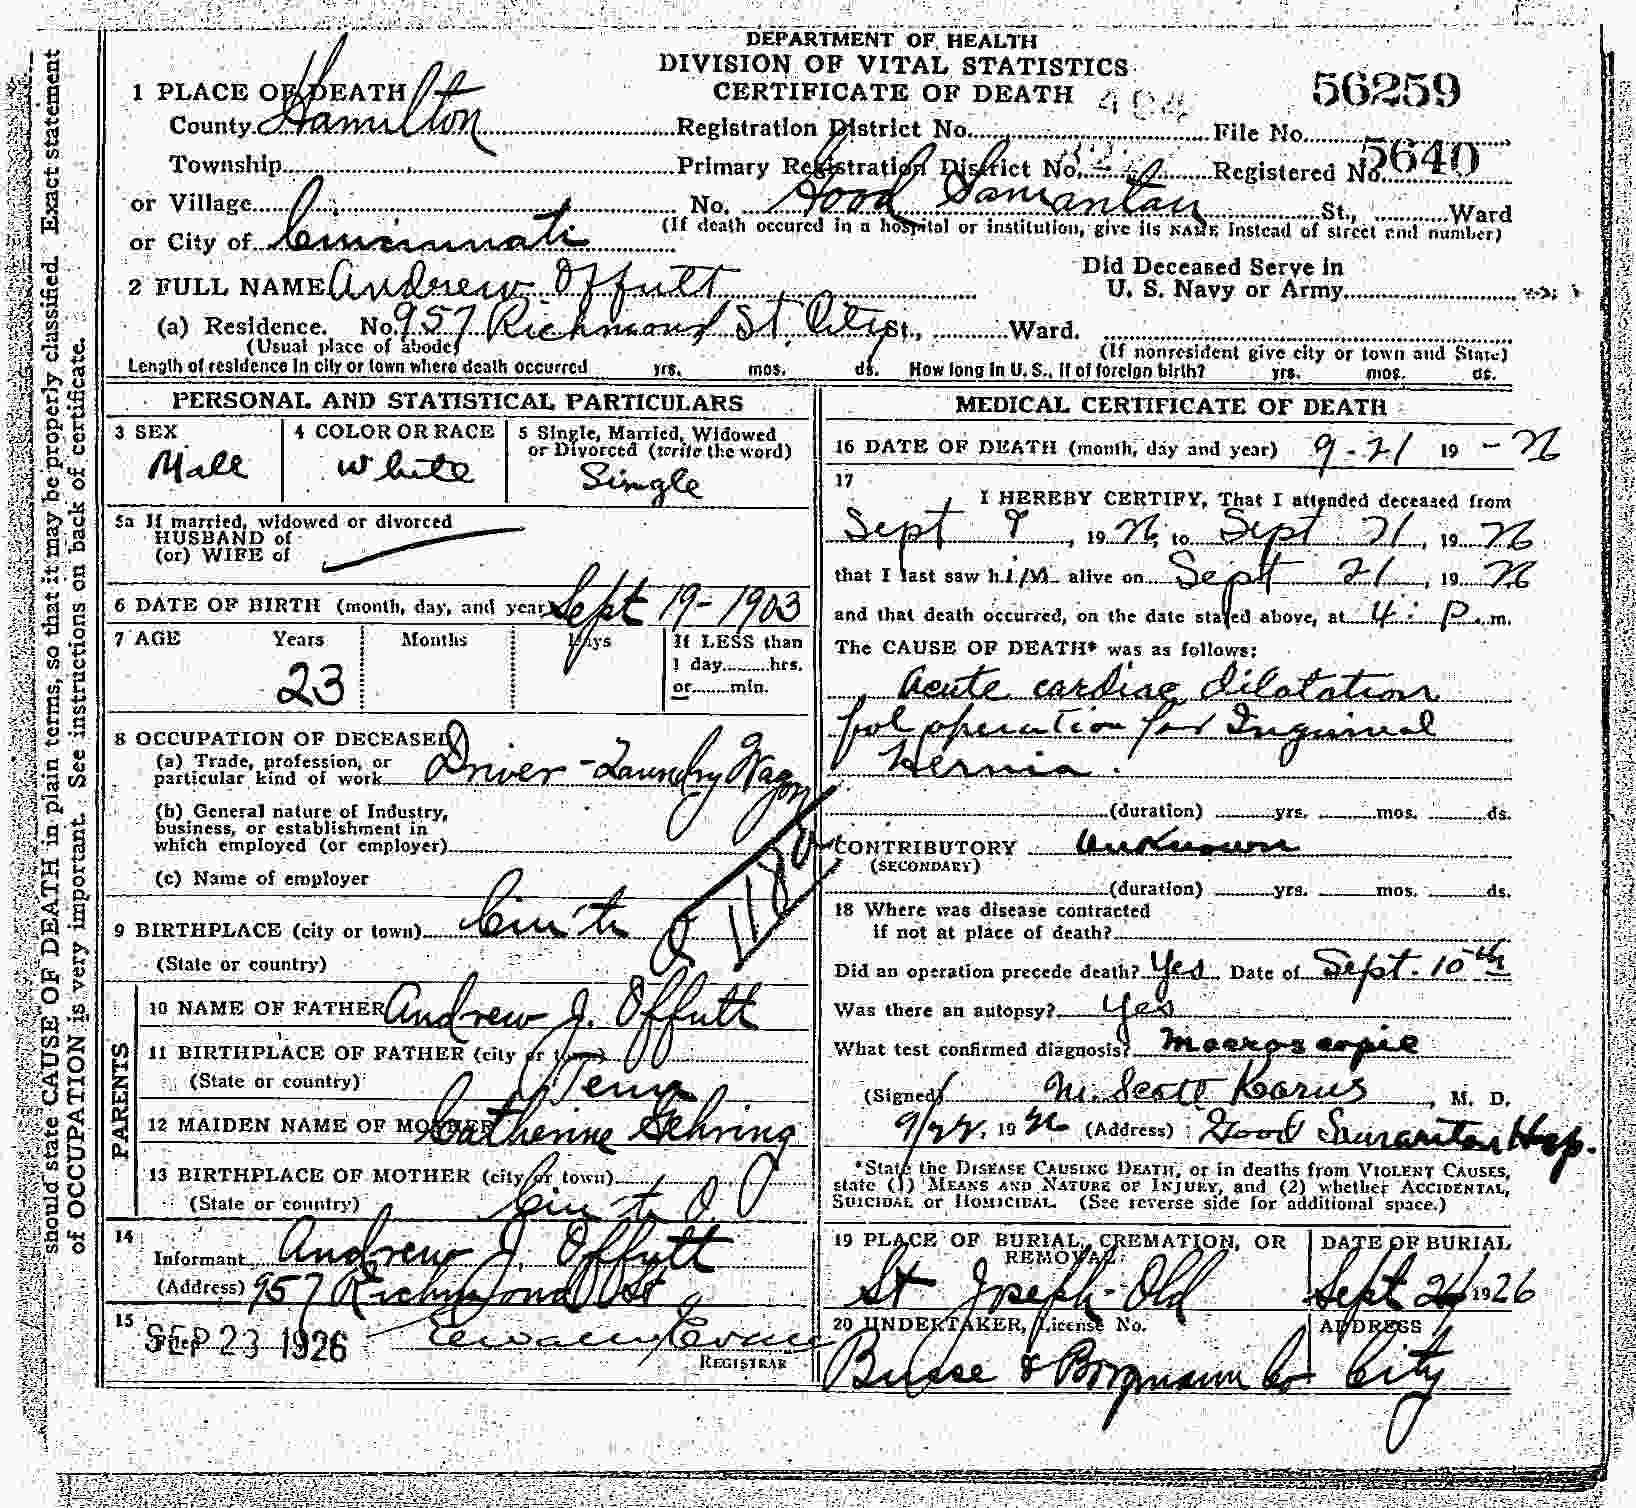 DEPARTMENT OF HEALTH
DIVISION OF VITAL STATISTICS
CERTIFICATE OF DEATH
1 PLACE OF DEATH
56259
County Hamilton Registration District No. 494 File No.
Township Primary Registration District No. Registered No. 5640
or Village No. Good Samaritan St., Ward
(If death occured in a hospital or institution, give its NAME instead of street and number)
or City of Cincinnati
2 FULL NAME Andrew Offutt
Did Deceased Serve in
U. S. Navy or Army
(a) Residence. No. 957 Richmond St. City St., Ward.
(Usual place of abode)
(If nonresident give city or town and State)
Length of residence in city or town where death occurred yrs. mos. ds. How long in U. S., if of foreign birth? yrs. mos. ds.
PERSONAL AND STATISTICAL PARTICULARS
3 SEX
Male
4 COLOR OR RACE
White
5 Single, Married, Widowed
or Divorced (write the word)
Single
5a If married, widowed or divorced
HUSBAND of
(or) WIFE of
6 DATE OF BIRTH (month, day, and year) Sept 19-1903
7 AGE Years Months Days
23
If LESS than
1 day hrs.
or min.
8 OCCUPATION OF DECEASED
(a) Trade, profession, or
particular kind of work Driver - Laundry Wagon
(b) General nature of Industry,
business, or establishment in
which employed (or employer)
(c) Name of employer
9 BIRTHPLACE (city or town) Cin'ti
(State or country)
PARENTS
10 NAME OF FATHER Andrew J. Offutt
11 BIRTHPLACE OF FATHER (city or town)
(State or country) Tenn
12 MAIDEN NAME OF MOTHER Catherine Gehring
13 BIRTHPLACE OF MOTHER (city or town)
(State or country) Cin'ti O
14
Informant Andrew J. Offutt
(Address) 957 Richmond St
15
Filed SEP 23 1926
REGISTRAR
MEDICAL CERTIFICATE OF DEATH
16 DATE OF DEATH (month, day and year) 9-21 19-26
17
I HEREBY CERTIFY, That I attended deceased from
Sept 9, 1926, to Sept 21, 1926
that I last saw him alive on Sept 21, 1926
and that death occurred, on the date stated above, at 4: P. m.
The CAUSE OF DEATH* was as follows:
Acute cardiac dilatation
fol operation for Inguinal
Hernia.
(duration) yrs. mos. ds.
CONTRIBUTORY Unknown
(SECONDARY)
(duration) yrs. mos. ds.
18 Where was disease contracted
if not at place of death?
Did an operation precede death? Yes Date of Sept. 10th
Was there an autopsy? Yes
What test confirmed diagnosis? Macroscopic
(Signed) M. Scott Karns, M. D.
9/22, 1926 (Address) Good Samaritan Hosp.
*State the DISEASE CAUSING DEATH, or in deaths from VIOLENT CAUSES,
state (1) MEANS AND NATURE OF INJURY, and (2) whether ACCIDENTAL,
SUICIDAL or HOMICIDAL. (See reverse side for additional space.)
19 PLACE OF BURIAL, CREMATION, OR
REMOVAL
St Joseph-Old
DATE OF BURIAL
Sept 24 1926
20 UNDERTAKER, License No.
Busse & Borgmann Co
ADDRESS
City
should state CAUSE OF DEATH in plain terms, so that it may be properly classified. Exact statement
of OCCUPATION is very important. See instructions on back of certificate.